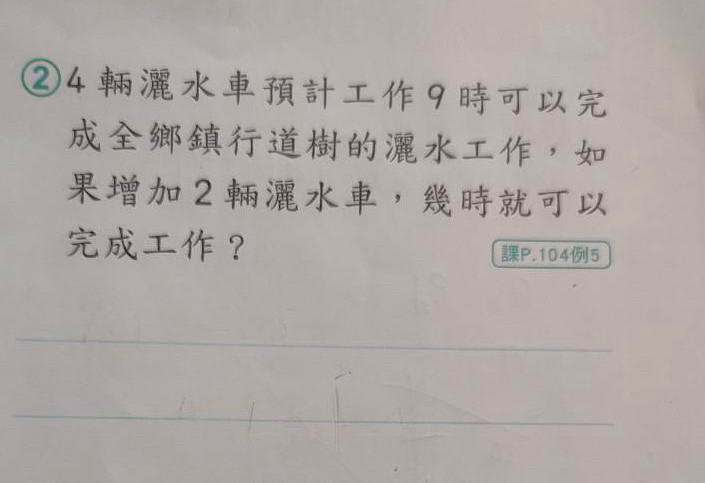 ②4輛灑水車預計工作9時可以完
成全鄉鎮行道樹的灑水工作，如
果增加2輛灑水車，幾時就可以
完成工作？
課P.104例5